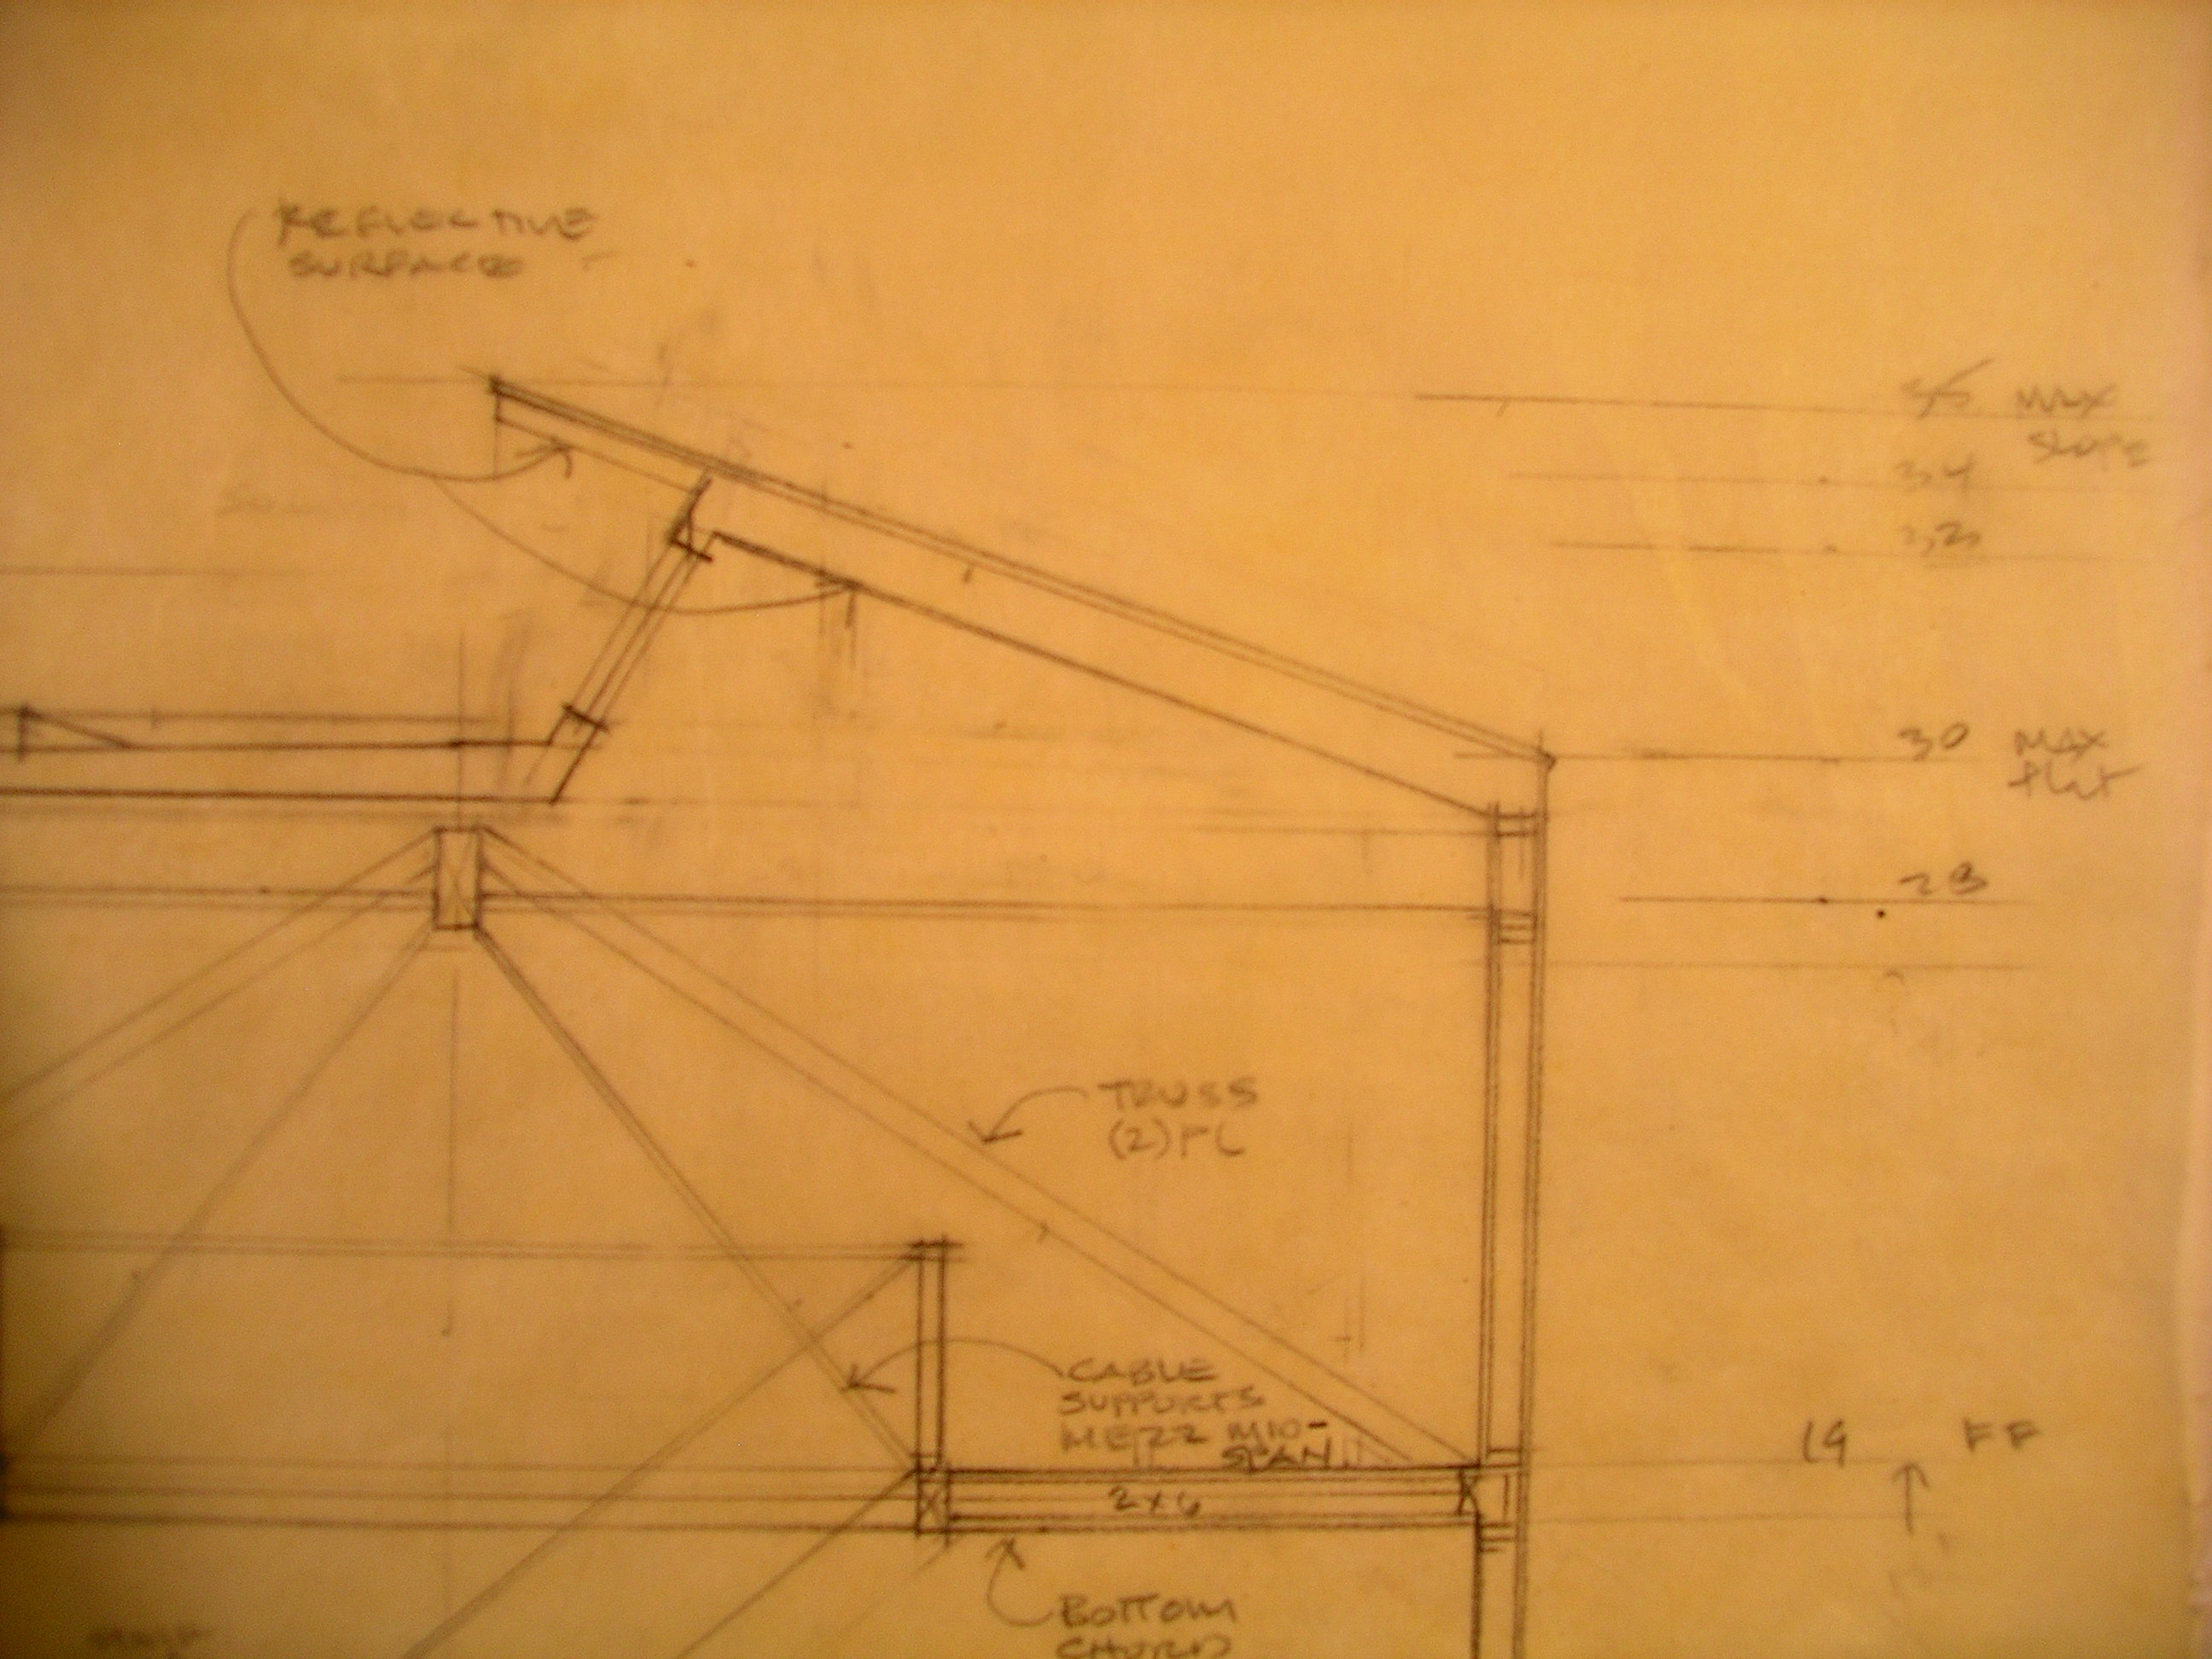 REFLECTIVE
SURFACE
35 MAX
SLOPE
34
30 MAX
flat
28
TRUSS
(2) PL
CABLE
SUPPORTS
MEZZ MID-
SPAN
19 FF
2x6
BOTTOM
CHORD